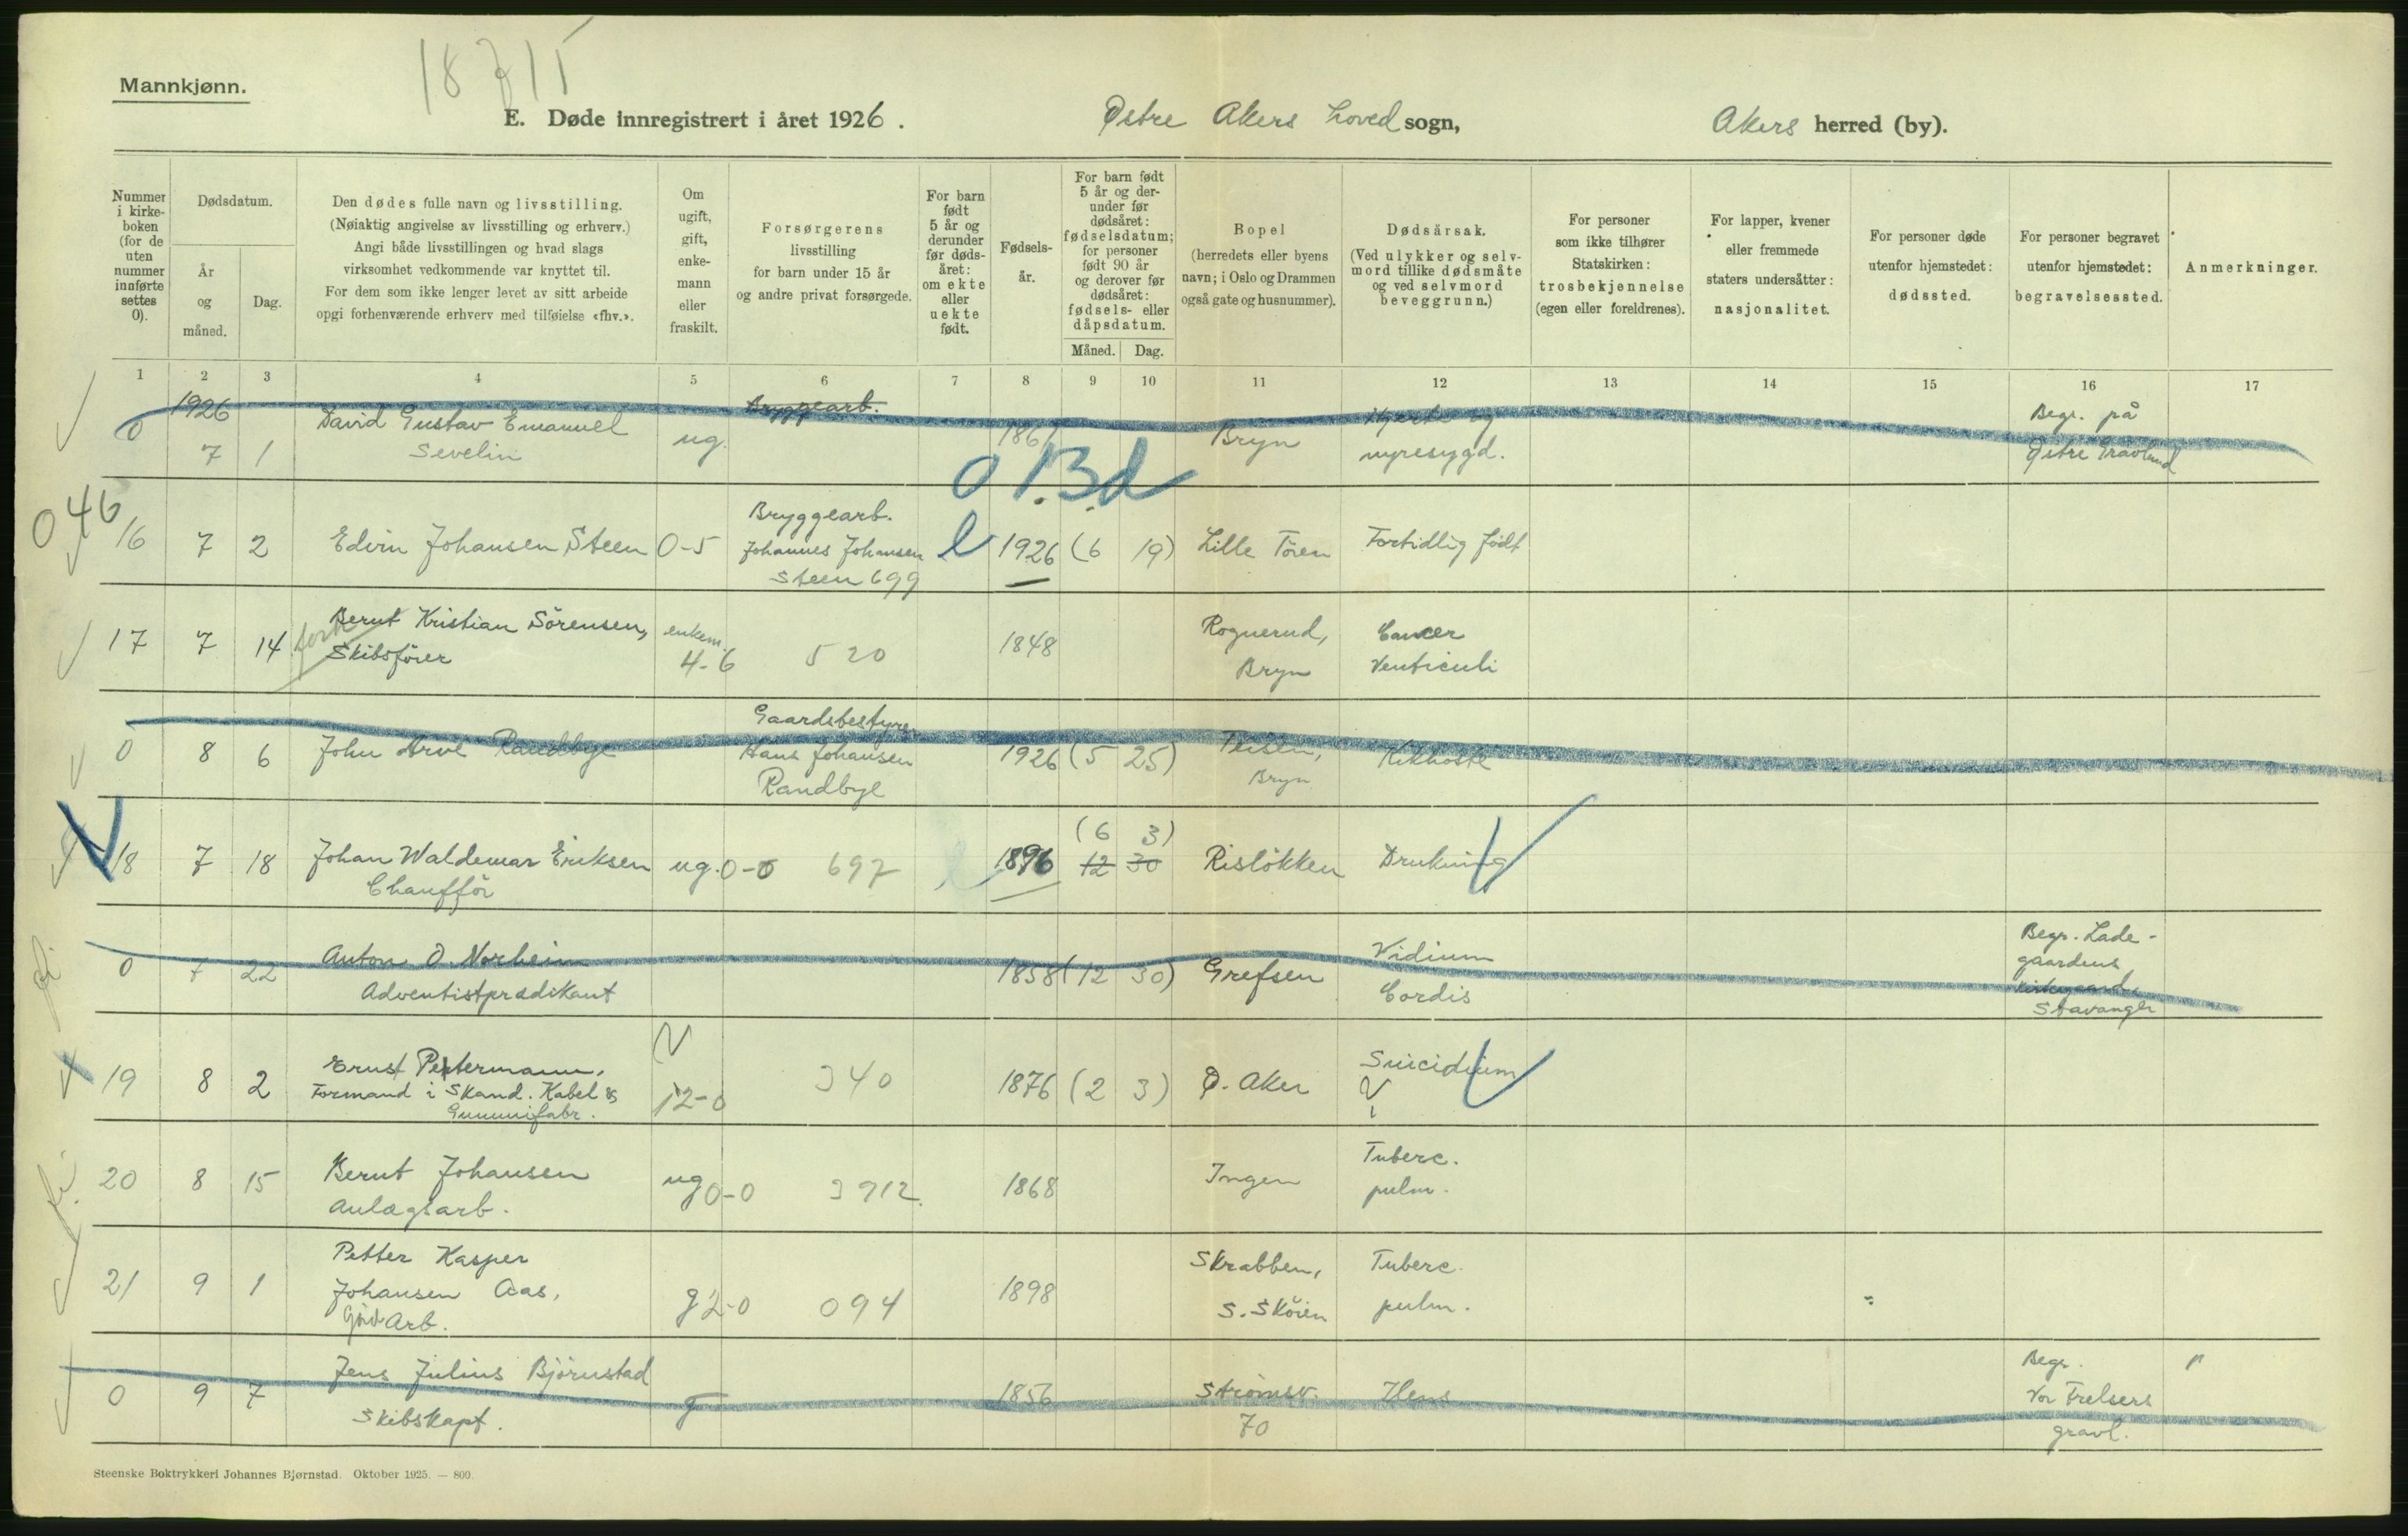 18715
Mannkjønn.
E. Døde innregistrert i året 1926. Østre Akers Hoved sogn, Akers herred (by).
Nummer i kirke-boken (for de uten nummer innførte settes 0).
Dødsdatum.
År og måned.
Dag.
Den dødes fulle navn og livsstilling.
(Nøiaktig angivelse av livsstilling og erhverv.)
Angi både livsstillingen og hvad slags
virksomhet vedkommende var knyttet til.
For dem som ikke lenger levet av sitt arbeide
opgi forhenværende erhverv med tilføielse «fhv.».
Om ugift, gift, enke-mann eller fraskilt.
Forsørgerens
livsstilling
for barn under 15 år
og andre privat forsørgede.
For barn født 5 år og derunder før døds-året: om ekte eller uekte født.
Fødsels-år.
For barn født 5 år og der-under før dødsåret: fødselsdatum; for personer født 90 år og derover før dødsåret: fødsels- eller dåpsdatum.
Måned. Dag.
Bopel
(herredets eller byens
navn; i Oslo og Drammen
også gate og husnummer).
Dødsårsak.
(Ved ulykker og selv-
mord tillike dødsmåte
og ved selvmord
beveggrunn.)
For personer
som ikke tilhører
Statskirken:
trosbekjennelse
(egen eller foreldrenes).
For lapper, kvener
eller fremmede
staters undersåtter:
nasjonalitet.
For personer døde
utenfor hjemstedet:
dødssted.
For personer begravet
utenfor hjemstedet:
begravelsessted.
Anmerkninger.
1 2 3 4 5 6 7 8 9 10 11 12 13 14 15 16 17
1926 Bryggearb. Hjerte og Begr. på
0 7 1 David Gustav Emanuel ug. 1861 Bryn nyresygd. Østre Gravlund
Sevelin
0 13d
046
Bryggearb.
16 7 2 Edvin Johansen Steen 0-5 Johannes Johansen 1926 (6 19) Lille Töien Fortidlig født
Steen 699
17 7 14 Bernt Kristian Sörensen, enkem. 520 1848 Rognerud, Cancer
forh. Skibsförer 4-6 Bryn Ventriculi
Gaardsbestyrer
0 8 6 John Arve Randbye Hans Johansen 1926 (5 25) Teisen, Kikhoste
Randbye Bryn
(6 3)
18 7 18 Johan Waldemar Eriksen ug. 0-0 697 1896 12 30 Rislökken Drukning
Chafför
0 7 22 Anton O. Norheim 1858 (12 30) Grefsen Vidium Begr. Lade-
Adventistprædikant Cordis gaardens
kirkegaard,
Stavanger
19 8 2 Ernst Petermann, 340 1876 (2 3) Ø. Aker Suicidium
Formand i Skand. Kabel &
Gummifabr. 12-0
20 8 15 Bernt Johansen ug 0-0 3912 1868 Ingen Tuberc.
Anlægsarb. pulm.
21 9 1 Petter Kasper Skrabben, Tuberc.
Johansen Aas, g 2-0 094 1898 S. Sköien pulm.
Gård Arb.
0 9 7 Jens Julius Björnstad g 1856 Strömsv. Ilens Begr.
Skibskapt. 70 Vor Frelsers
gravl.
Steenske Boktrykkeri Johannes Bjørnstad. Oktober 1925. — 800.